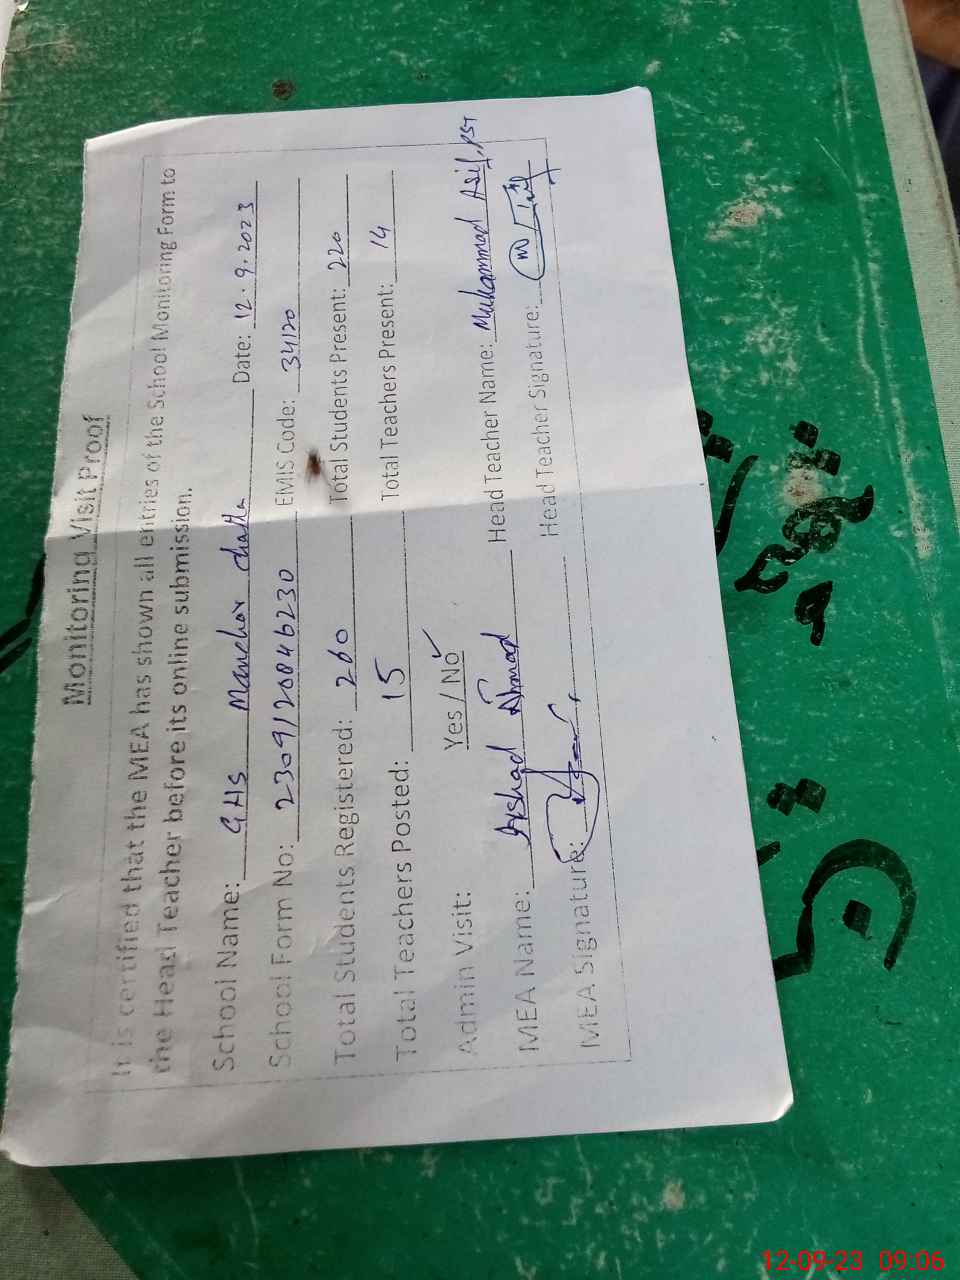 Monitoring Visit Proof
It is certified that the MEA has shown all entries of the School Monitoring Form to
the Head Teacher before its online submission.
School Name: GHS Manchar Chatha Date: 12.9.2023
School Form No: 2309120846230 EMIS Code: 34120
Total Students Registered: 260 Total Students Present: 220
Total Teachers Posted: 15 Total Teachers Present: 14
Admin Visit: Yes / No ✓
MEA Name: Arshad Ahmad Head Teacher Name: Muhammad Asif, PST
MEA Signature: Head Teacher Signature:
12-09-23 09:06